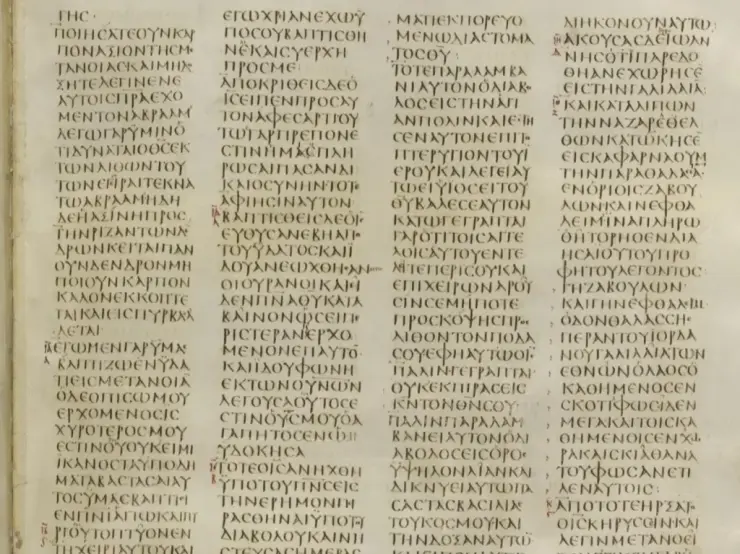 ΓΗϹ
ΠΟΙΗϹΑΤΕΟΥΝΚΑΡ
ΠΟΝΑΞΙΟΝΤΗϹΜΕ
ΤΑΝΟΙΑϹΚΑΙΜΗΔΟ
ΞΗΤΕΛΕΓΙΝΕΝΕ
ΑΥΤΟΙϹΠΡΑΕΧΟ
ΜΕΝΤΟΝΑΒΡΑΑΜ
ΛΕΓΩΓΑΡΫΜΙΝΟ
ΤΙΔΥΝΑΤΑΙΟΘϹΕΚ
ΤΩΝΛΙΘΩΝΤΟΥ
ΤΩΝΕΓΙΡΑΙΤΕΚΝΑ
ΤΩΑΒΡΑΑΜΗΔΗ
ΔΕΗΑΞΙΝΗΠΡΟϹ
ΤΗΝΡΙΖΑΝΤΩΝΔΕ
ΔΡΩΝΚΕΙΤΑΙΠΑΝ
ΟΥΝΔΕΝΔΡΟΝΜΗ
ΠΟΙΟΥΝΚΑΡΠΟΝ
ΚΑΛΟΝΕΚΚΟΠΤΕ
ΤΑΙΚΑΙΕΙϹΠΥΡΒΑΛ
ΛΕΤΑΙ
ΕΓΩΜΕΝΓΑΡΫΜΑϹ
ΒΑΠΤΙΖΩΕΝΫΔΑ
ΤΙΕΙϹΜΕΤΑΝΟΙΑ
ΟΔΕΟΠΙϹΩΜΟΥ
ΕΡΧΟΜΕΝΟϹΙϹ
ΧΥΡΟΤΕΡΟϹΜΟΥ
ΕϹΤΙΝΟΫΟΥΚΕΙΜΙ
ΙΚΑΝΟϹΤΑΫΠΟΔΗ
ΜΑΤΑΒΑϹΤΑϹΑΙΑΥ
ΤΟϹΫΜΑϹΒΑΠΤΙϹΙ
ΕΝΠΝΙΑΓΙΩΚΑΙΠΥΡΙ
ΟΥΤΟΠΤΥΟΝΕΝ
ΤΗΧΕΙΡΙΑΥΤΟΥΚΑΙ
ΕΓΩΧΡΙΑΝΕΧΩΫ
ΠΟϹΟΥΒΑΠΤΙϹΘΗ
ΝΕΚΑΙϹΥΕΡΧΗ
ΠΡΟϹΜΕ
ΑΠΟΚΡΙΘΕΙϹΔΕΟ
ΙϹΕΙΠΕΝΠΡΟϹΑΥ
ΤΟΝΑΦΕϹΑΡΤΙΟΥ
ΤΩΓΑΡΠΡΕΠΟΝΕ
ϹΤΙΝΗΜΑϹΠΛΗ
ΡΩϹΑΙΠΑϹΑΝΔΙ
ΚΑΙΟϹΥΝΗΝΤΟΤΕ
ΑΦΙΗϹΙΝΑΥΤΟΝ
ΒΑΠΤΙϹΘΕΙϹΔΕΟΙϹ
ΕΥΘΥϹΑΝΕΒΗΑΠΟ
ΤΟΥΫΔΑΤΟϹΚΑΙΪ
ΔΟΥΑΝΕΩΧΘΗϹΑΝ
ΟΙΟΥΡΑΝΟΙΚΑΙΕΙ
ΔΕΝΠΝΑΘΥΚΑΤΑ
ΒΑΙΝΟΝΩϹΕΙΠΕ
ΡΙϹΤΕΡΑΝΕΡΧΟ
ΜΕΝΟΝΕΠΑΥΤΟΝ
ΚΑΙΪΔΟΥΦΩΝΗ
ΕΚΤΩΝΟΥΝΩΝ
ΛΕΓΟΥϹΑΟΥΤΟϹΕ
ϹΤΙΝΟΥϹΜΟΥΟΑ
ΓΑΠΗΤΟϹΕΝΩΗΥ
ΔΟΚΗϹΑ
ΤΟΤΕΟΙϹΑΝΗΧΘΗ
ΫΠΟΤΟΥΠΝϹΕΙϹ
ΤΗΝΕΡΗΜΟΝΠΙ
ΡΑϹΘΗΝΑΙΫΠΟΤΟΥ
ΔΙΑΒΟΛΟΥΚΑΙΝΗ
ΜΑΤΙΕΚΠΟΡΕΥΟ
ΜΕΝΩΔΙΑϹΤΟΜΑ
ΤΟϹΘΥ
ΤΟΤΕΠΑΡΑΛΑΜΒΑ
ΝΙΑΥΤΟΝΟΔΙΑΒΟ
ΛΟϹΕΙϹΤΗΝΑΓΙ
ΑΝΠΟΛΙΝΚΑΙΕϹΤΗ
ϹΕΝΑΥΤΟΝΕΠΙΤΟ
ΠΤΕΡΥΓΙΟΝΤΟΥΪ
ΕΡΟΥΚΑΙΛΕΓΕΙΑΥ
ΤΩΕΙΥΙΟϹΕΙΤΟΥ
ΘΥΒΑΛΕϹΕΑΥΤΟΝ
ΚΑΤΩΓΕΓΡΑΠΤΑΙ
ΓΑΡΟΤΙΤΟΙϹΑΓΓΕ
ΛΟΙϹΑΥΤΟΥΕΝΤΕ
ΛΙΤΕΠΕΡΙϹΟΥΚΑΙ
ΕΠΙΧΕΙΡΩΝΑΡΟΥ
ϹΙΝϹΕΜΗΠΟΤΕ
ΠΡΟϹΚΟΨΗϹΠΡΟϹ
ΛΙΘΟΝΤΟΝΠΟΔΑ
ϹΟΥΕΦΗΑΥΤΩΟΙϹ
ΠΑΛΙΝΓΕΓΡΑΠΤΑΙ
ΟΥΚΕΚΠΙΡΑϹΕΙϹ
ΚΝΤΟΝΘΝϹΟΥ
ΠΑΛΙΝΠΑΡΑΛΑΜ
ΒΑΝΕΙΑΥΤΟΝΟΔΙ
ΑΒΟΛΟϹΕΙϹΟΡΟϹ
ΫΨΗΛΟΝΛΙΑΝΚΑΙ
ΔΙΚΝΥΕΙΑΥΤΩΠΑ
ϹΑϹΤΑϹΒΑϹΙΛΙΑϹ
ΤΟΥΚΟϹΜΟΥΚΑΙ
ΤΗΝΔΟΞΑΝΑΥΤΩ
ΔΙΗΚΟΝΟΥΝΑΥΤΩ
ΑΚΟΥϹΑϹΔΕΪΩΑΝ
ΝΗϹΟΤΙΠΑΡΕΔΟ
ΘΗΑΝΕΧΩΡΗϹΕ
ΕΙϹΤΗΝΓΑΛΙΛΑΙΑ
ΚΑΙΚΑΤΑΛΙΠΩΝ
ΤΗΝΝΑΖΑΡΕΘΕΛ
ΘΩΝΚΑΤΩΚΗϹΕ
ΕΙϹΚΑΦΑΡΝΑΟΥΜ
ΤΗΝΠΑΡΑΘΑΛΑϹϹΑ
ΕΝΟΡΙΟΙϹΖΑΒΟΥ
ΛΩΝΚΑΙΝΕΦΘΑ
ΛΕΙΜΙΝΑΠΛΗΡΩ
ΘΗΤΟΡΗΘΕΝΔΙΑ
ΗϹΑΪΟΥΤΟΥΠΡΟ
ΦΗΤΟΥΛΕΓΟΝΤΟϹ
ΓΗΖΑΒΟΥΛΩΝ
ΚΑΙΓΗΝΕΦΘΑΛΙΜ
ΟΔΟΝΘΑΛΑϹϹΗϹ
ΠΕΡΑΝΤΟΥΪΟΡΔΑ
ΝΟΥΓΑΛΙΛΑΙΑΤΩΝ
ΕΘΝΩΝΟΛΑΟϹΟ
ΚΑΘΗΜΕΝΟϹΕΝ
ϹΚΟΤΙΦΩϹΕΙΔΕΝ
ΜΕΓΑΚΑΙΤΟΙϹΚΑ
ΘΗΜΕΝΟΙϹΕΝΧΩ
ΡΑΚΑΙϹΚΙΑΘΑΝΑ
ΤΟΥΦΩϹΑΝΕΤΙ
ΛΕΝΑΥΤΟΙϹ
ΑΠΟΤΟΤΕΗΡΞΑΤΟ
ΟΙϹΚΗΡΥϹϹΙΝΚΑΙ
ΛΕΓΙΝΜΕΤΑΝΟΕΙ